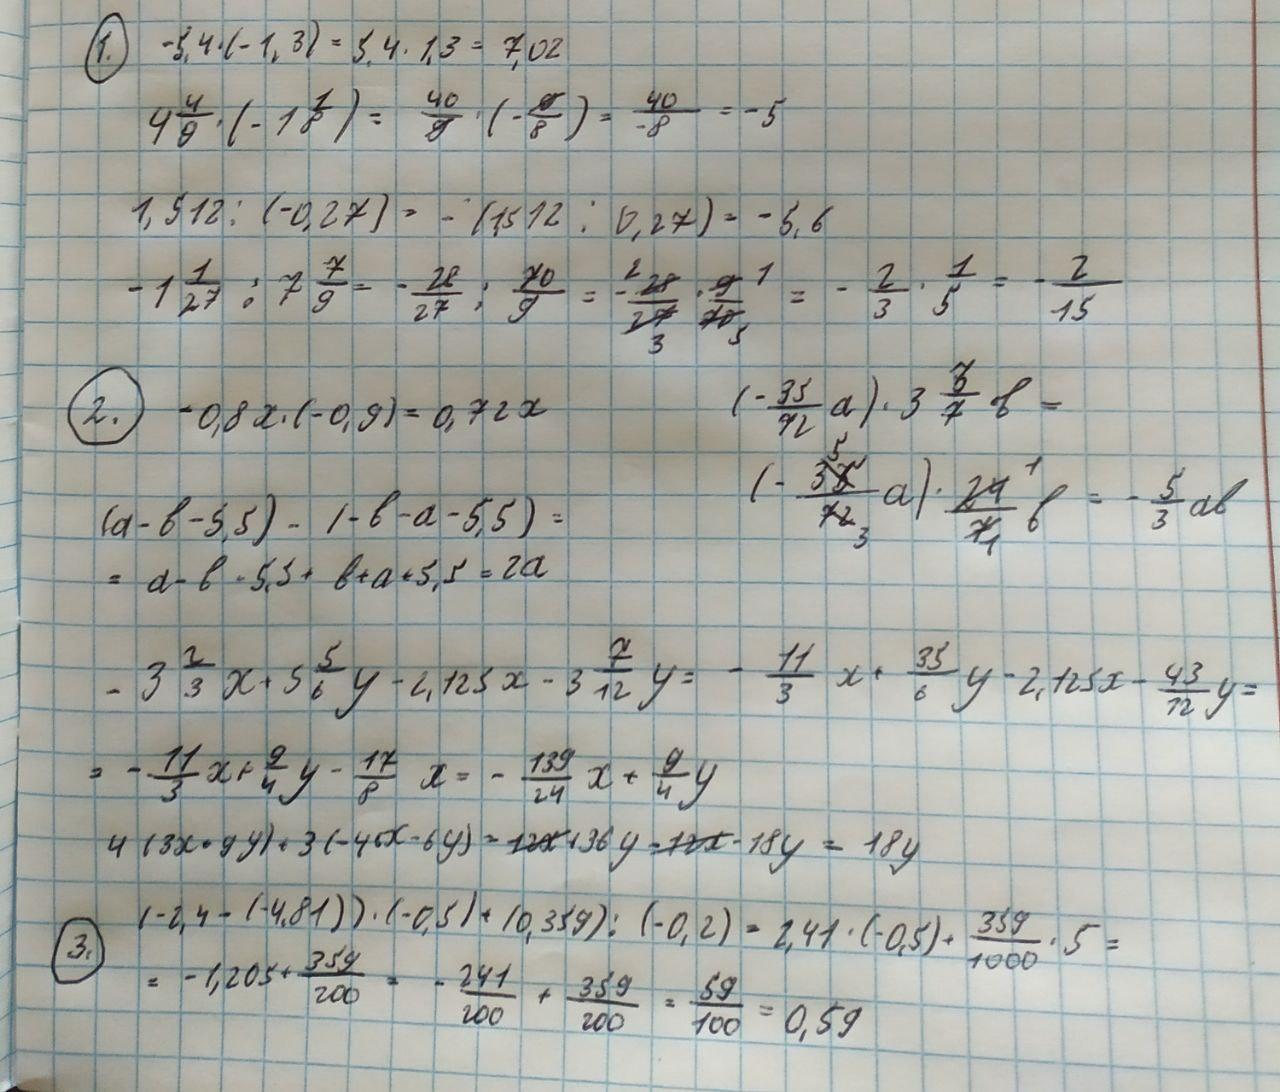 1. -5,4·(-1,3) = 5,4·1,3 = 7,02
4 4/9·(-1 1/8) = 40/9·(-9/8) = 40/-8 = -5
1,512 : (-0,27) = -(1,512 : 0,27) = -5,6
-1 1/27 : 7 7/9 = -28/27 : 70/9 = -28/27 · 9/70 = -2/3 · 1/5 = -2/15
2. -0,8x·(-0,9) = 0,72x
(-35/72 a)·3 3/7 b =
(-35/72 a)·24/7 b = -5/3 ab
(a-b-5,5) - (-b-a-5,5) =
= a-b-5,5+b+a+5,5 = 2a
-3 2/3 x + 5 5/6 y - 2,125x - 3 7/12 y = -11/3 x + 35/6 y - 2,125x - 43/12 y =
= -11/3 x + 9/4 y - 17/8 x = -139/24 x + 9/4 y
4(3x+9y)+3(-4x-6y) = 12x+36y-12x-18y = 18y
3. (-2,4-(-4,81))·(-0,5)+(0,359):(-0,2) = 2,41·(-0,5)+359/1000·5 =
= -1,205+359/200 = -241/200 + 359/200 = 59/100 = 0,59